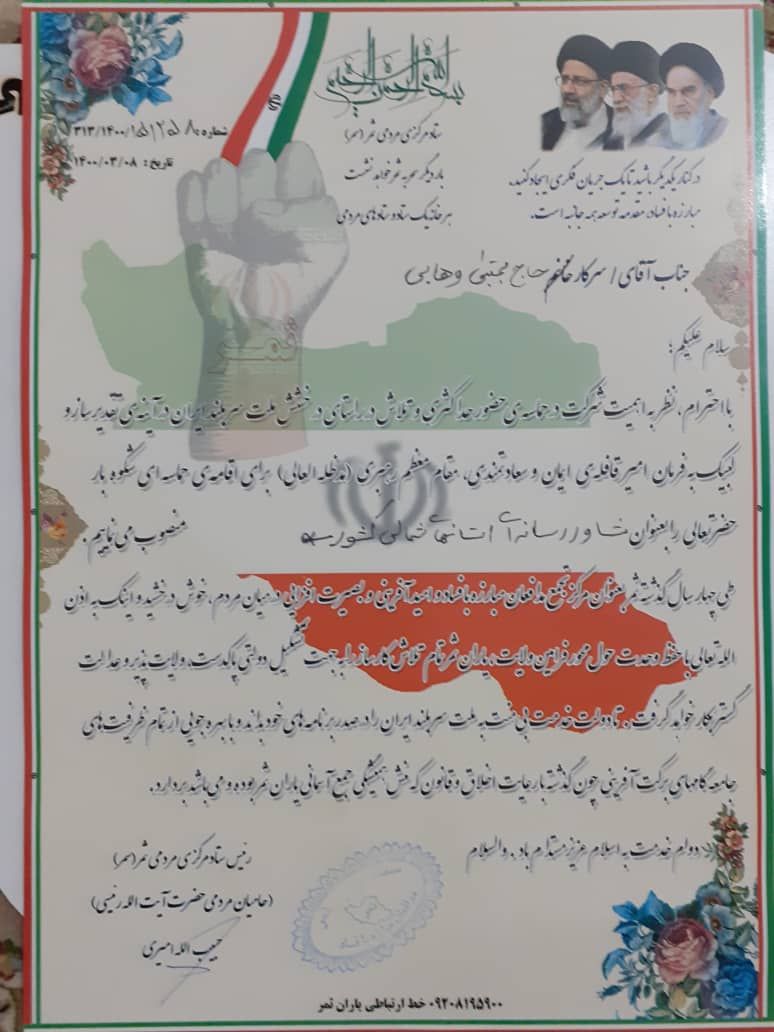 بسم الله الرحمن الرحیم
شماره ۳۱۳/۱۴۰۰/
تاریخ: ۱۴۰۰/۰۳/۰۸
ستاد مرکزی مردمی ثمر (سمر)
بار دیگر سمر به ثمر خواهد نشست
هر خانه یک ستاد و ستادهای مردمی
در کنار یکدیگر باشید تا یک جریان فکری ایجاد کنید.
مبارزه با فساد، مقدمه توسعه همه جانبه است.
جناب آقای / سرکار خانم حاج مجتبی وهابی
سلام علیکم؛
با احترام، نظر به اهمیت شرکت در حماسه‌ی حضور حداکثری و تلاش در راستای درخشش ملت سربلند ایران در آینه‌ی تقدیرساز و
لبیک به فرمان امیر قافله‌ی ایمان و سعادتمندی، مقام معظم رهبری (مدظله العالی) برای اقامه‌ی حماسه ای شکوه بار
حضرتعالی را بعنوان مشاور رسانه‌ای استانهای شمالی کشور منصوب می نماییم.
طی چهار سال گذشته ثمر بعنوان مرکز تجمع مدافعان مبارزه با فساد و امید آفرینی و بصیرت افزایی در میان مردم، خوش درخشید و اینک به اذن
الله تعالی با حفظ وحدت حول محور فرامین ولایت، یاران ثمر تمام تلاش کارساز را به جهت تشکیل دولتی پاکدست، ولایت پذیر و عدالت
گستر بکار خواهد گرفت. تا دولت خدمت بی منت به ملت سربلند ایران را در صدر برنامه های خود بداند و با بهره جویی از تمام ظرفیت های
جامعه گامهای برکت آفرینی چون گذشته با رعایت اخلاق و قانون که منش همیشگی جمع آسمانی یاران ثمر بوده و می باشد بردارد.
دوام خدمت به اسلام عزیز مستدام باد. والسلام
رئیس ستاد مرکزی مردمی ثمر (سمر)
(حامیان مردمی حضرت آیت الله رئیسی)
حبیب الله امیری
۰۹۲۰۸۱۹۵۹۰۰ خط ارتباطی یاران ثمر